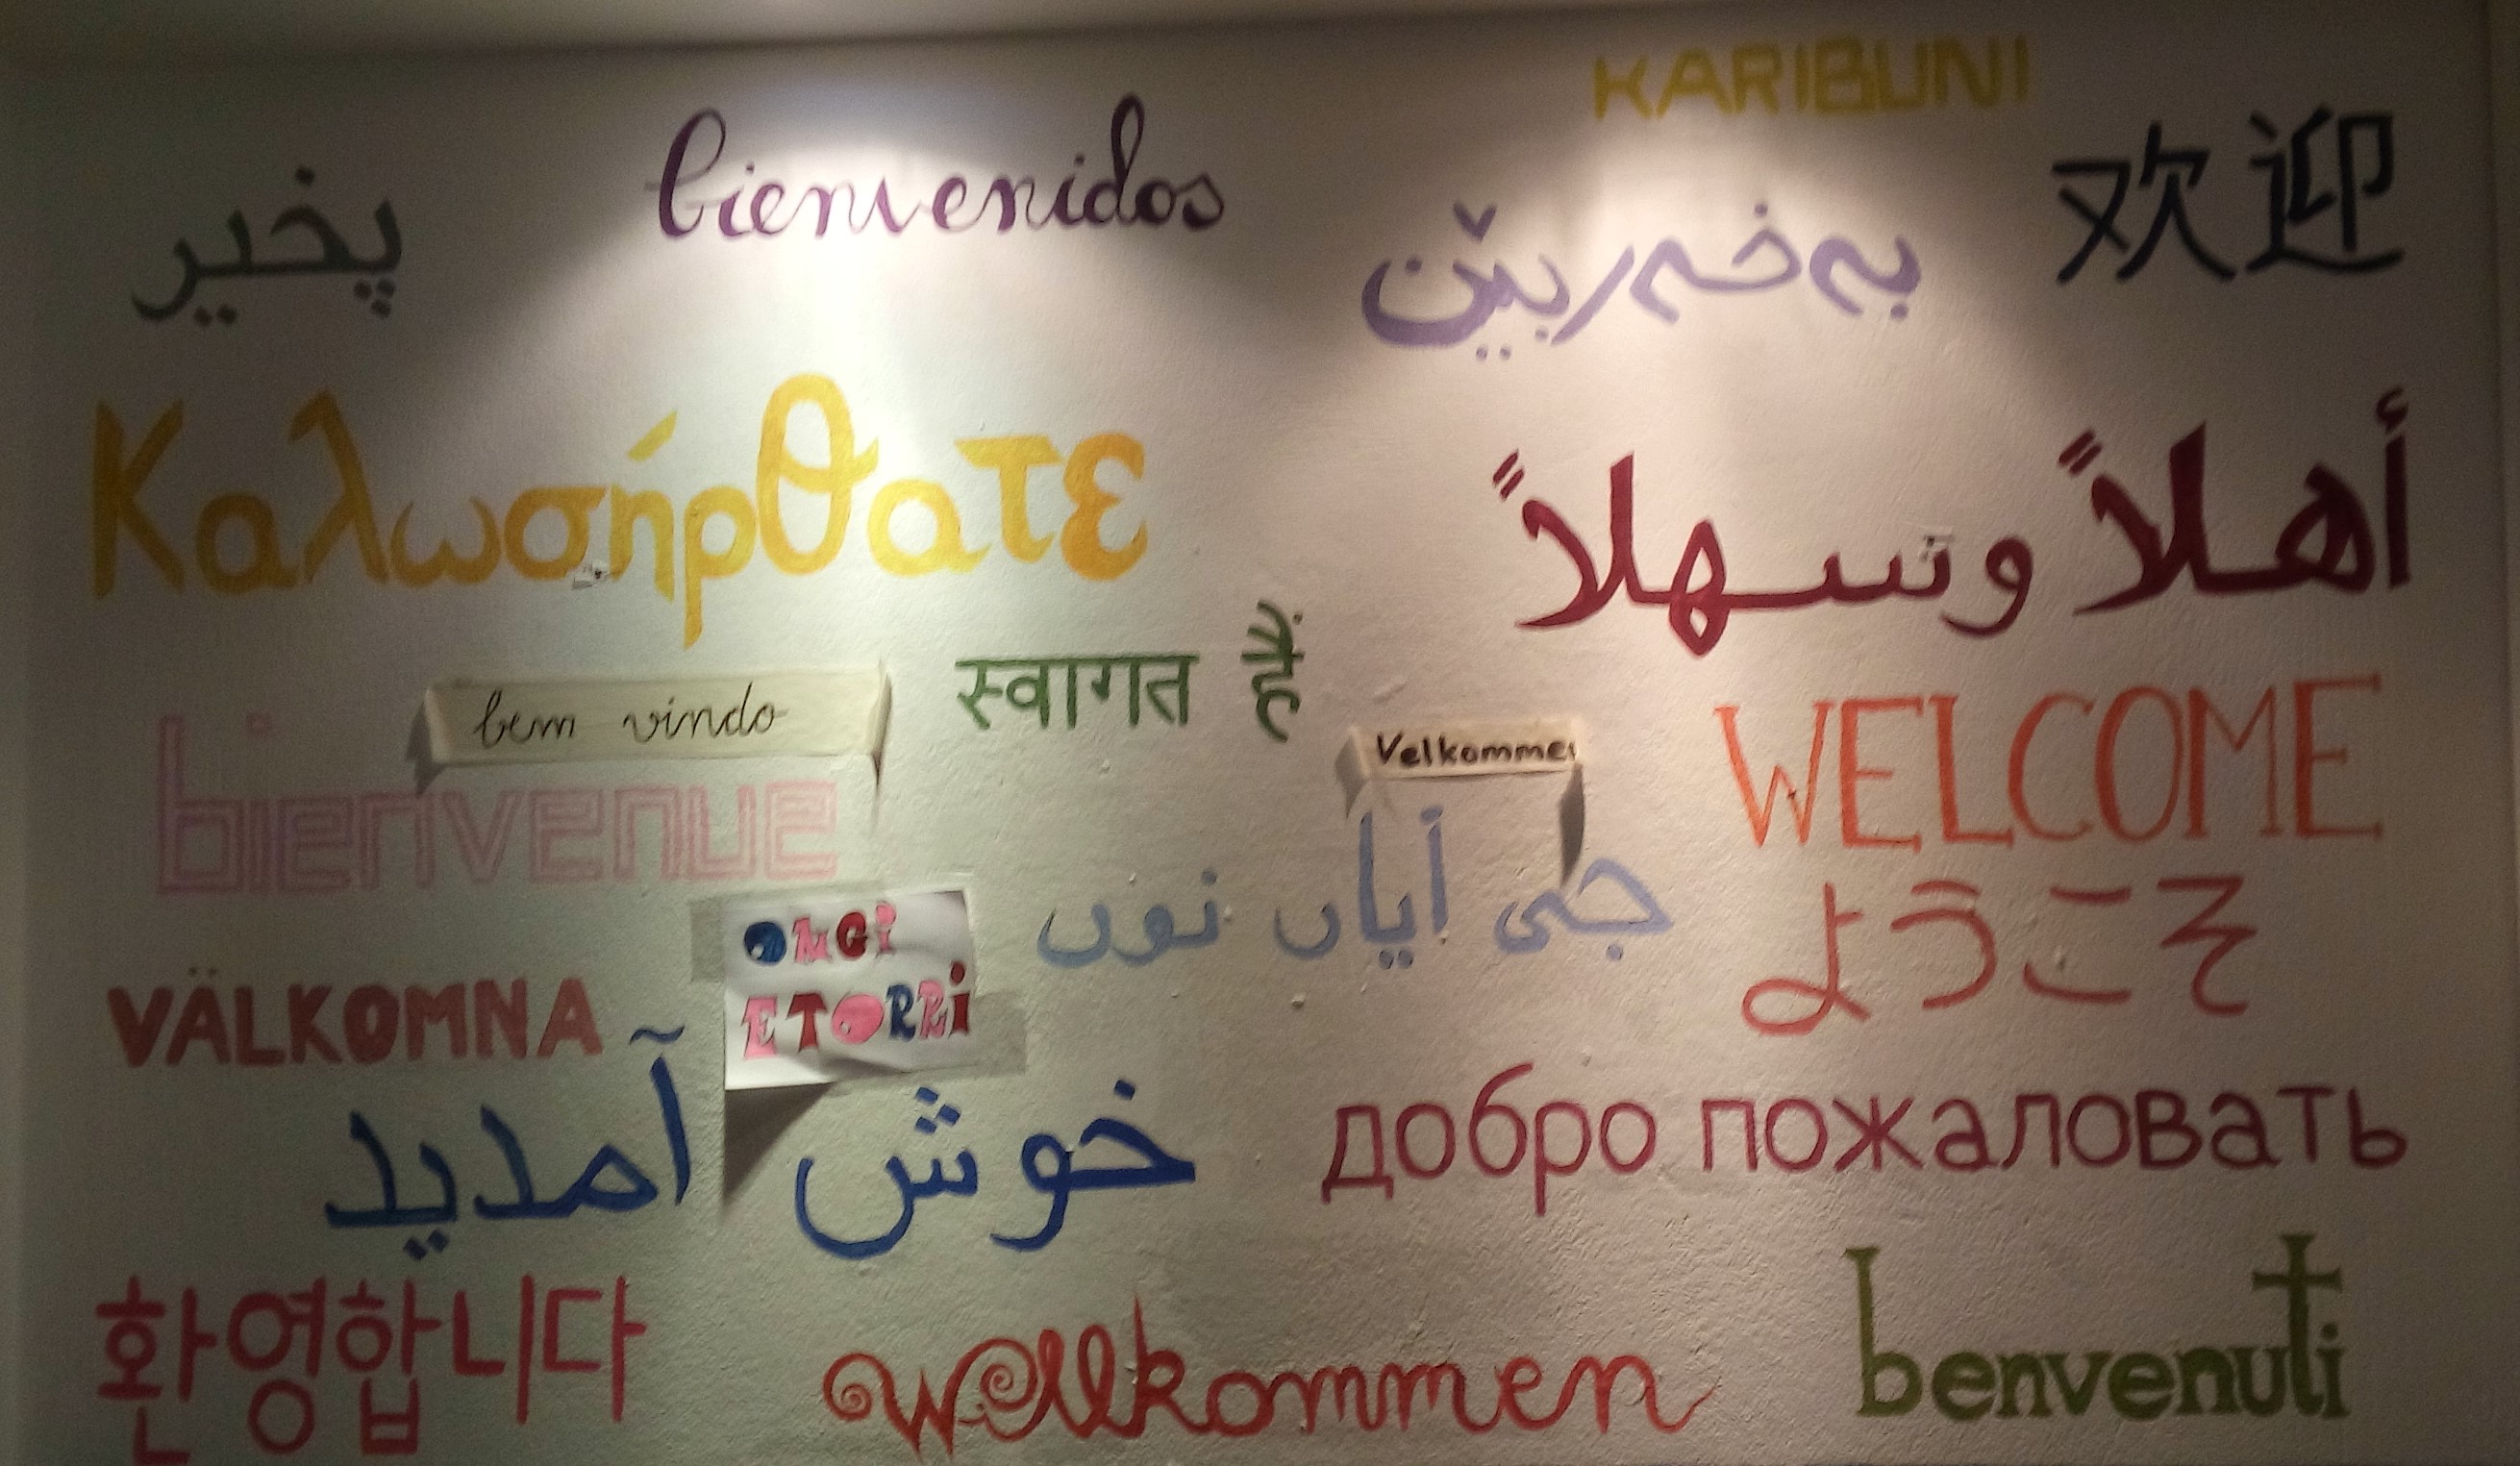 KARIBUNI
bienvenidos
پخير
欢迎
بەخەربێن
Καλωσήρθατε
أهلاً وسهلاً
स्वागत हैं
bem vindo
WELCOME
Velkomme
bienvenue
جی آیاں نوں
ようこそ
ONGI
ETORRI
VÄLKOMNA
خوش آمدید
добро пожаловать
환영합니다
wellkommen
benvenuti